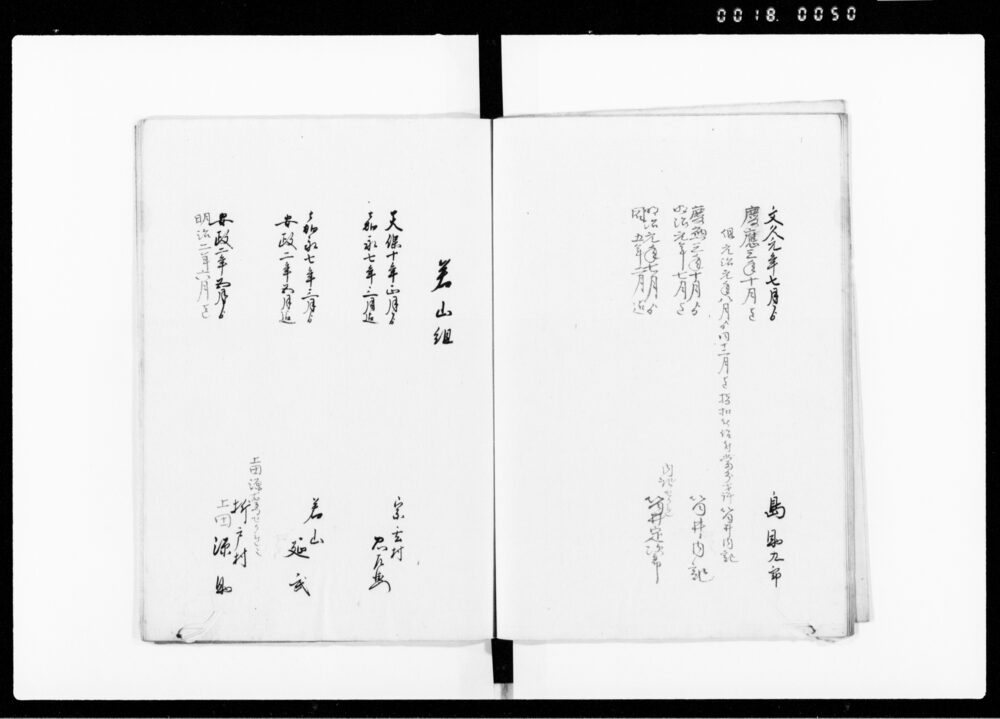 0018 0050
文久元年七月ゟ
慶應三年十月迄
島 助九郎
但元治元年八月ゟ同十二月迄指扣
筒井内記
慶應三年十月ゟ
明治元年七月迄
筒井内記
明治元年七月ゟ
同五年二月迄
筒井定次郎
若山組
天保十年正月ゟ
嘉永七年三月迄
宗玄村
嘉永七年三月ゟ
安政二年四月迄
若山 延武
安政二年四月ゟ
明治二年六月迄
折戸村
上田源助